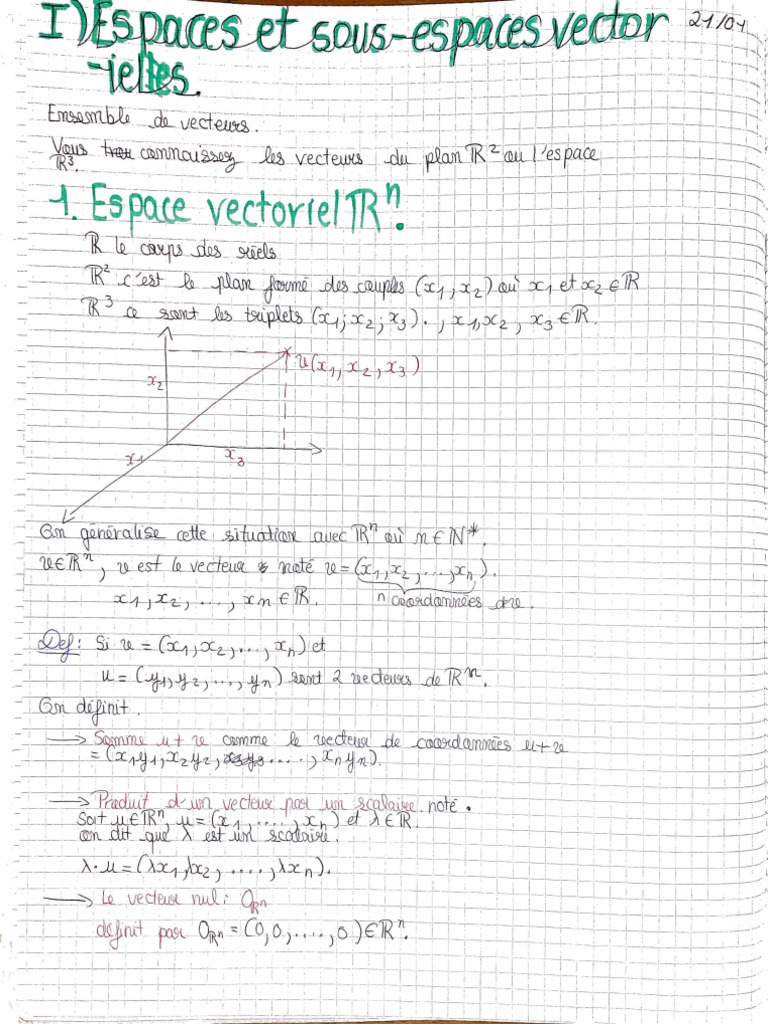 I) Espaces et sous-espaces vector 21/01
-ielles.
Ensemble de vecteurs.
Vous connaissez les vecteurs du plan ℝ² ou l'espace
ℝ³.
1. Espace vectoriel ℝⁿ.
ℝ le corps des réels
ℝ² c'est le plan formé des couples (x₁, x₂) où x₁ et x₂ ∈ ℝ
ℝ³ ce sont les triplets (x₁; x₂; x₃)., x₁, x₂, x₃ ∈ ℝ.
v(x₁, x₂, x₃)
x₂
x₁ x₃
On généralise cette situation avec ℝⁿ où n ∈ ℕ*.
v ∈ ℝⁿ, v est le vecteur noté v = (x₁, x₂, ..., xₙ).
x₁, x₂, ..., xₙ ∈ ℝ. n coordonnées de v.
Def: Si v = (x₁, x₂, ..., xₙ) et
u = (y₁, y₂, ..., yₙ) sont 2 vecteurs de ℝⁿ.
On définit.
→ Somme u + v comme le vecteur de coordonnées u + v
= (x₁y₁, x₂y₂, ...., xₙyₙ).
→ Produit d'un vecteur par un scalaire noté •
Soit u ∈ ℝⁿ, u = (x₁, ...., xₙ) et λ ∈ ℝ.
on dit que λ est un scalaire.
λ·u = (λx₁, λx₂, ...., λxₙ).
→ Le vecteur nul: 0ℝⁿ
définit par 0ℝⁿ = (0, 0, ...., 0) ∈ ℝⁿ.